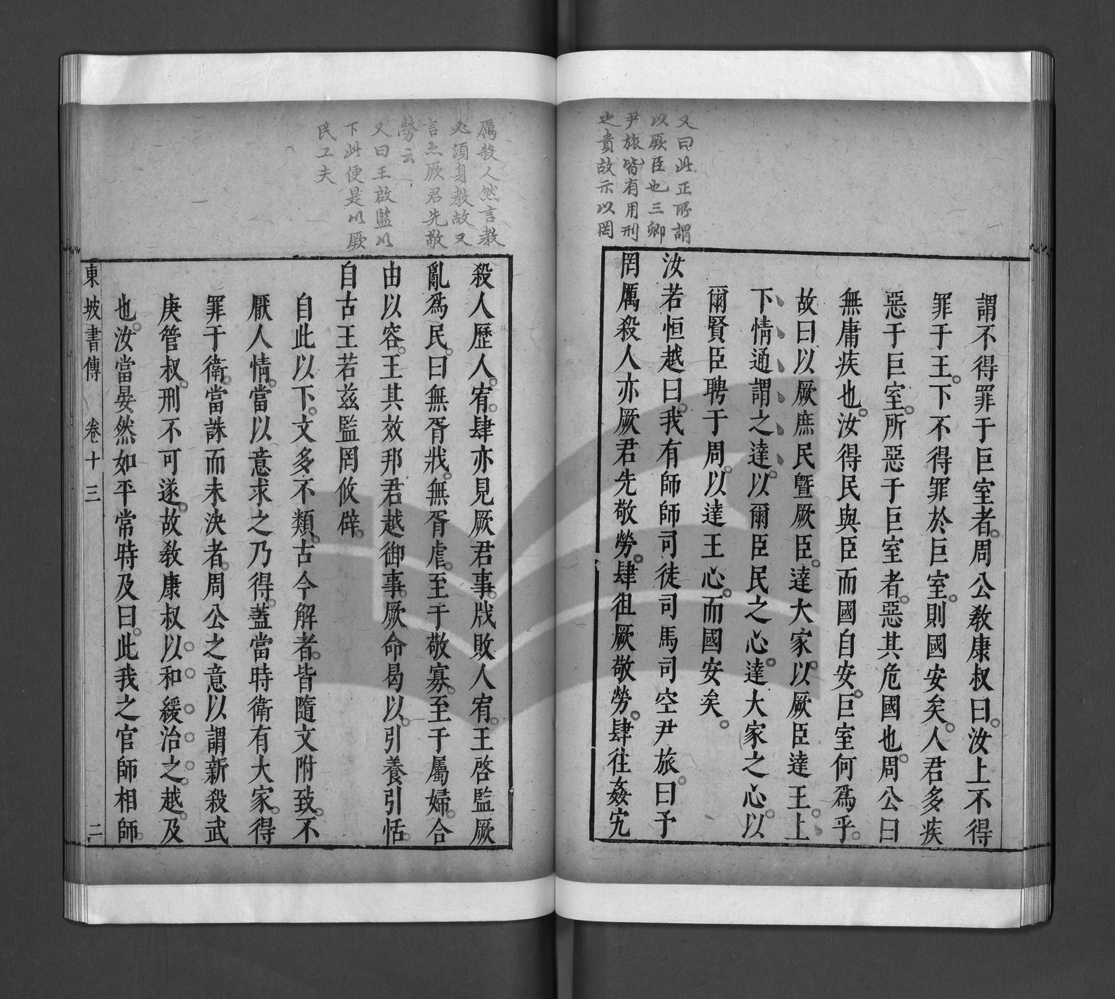 又曰此正所謂
以厥臣也三卿
尹旅皆有用刑
之責故示以罔
謂不得罪于巨室者周公敎康叔曰汝上不得
罪于王下不得罪於巨室則國安矣人君多疾
惡于巨室所惡于巨室者惡其危國也周公曰
無庸疾也汝得民與臣而國自安巨室何爲乎
故曰以厥庶民曁厥臣達大家以厥臣達王上
下情通謂之達以爾臣民之心達大家之心以
爾賢臣聘于周以達王心而國安矣
汝若恒越曰我有師師司徒司馬司空尹旅曰予
罔厲殺人亦厥君先敬勞肆徂厥敬勞肆往姦宄
厲殺人然言敎
必須身敎故又
言亦厥君先敬
勞云
又曰王啟監以
下此便是以厥
民工夫
殺人歷人宥肆亦見厥君事戕敗人宥王啓監厥
亂爲民曰無胥戕無胥虐至于敬寡至于屬婦合
由以容王其效邦君越御事厥命曷以引養引恬
自古王若玆監罔攸辟
自此以下文多不類古今解者皆隨文附致不
厭人情當以意求之乃得蓋當時衛有大家得
罪于衛當誅而未決者周公之意以謂新殺武
庚管叔刑不可遂故敎康叔以和緩治之越及
也汝當晏然如平常時及曰此我之官師相師
東坡書傳 卷十三 二